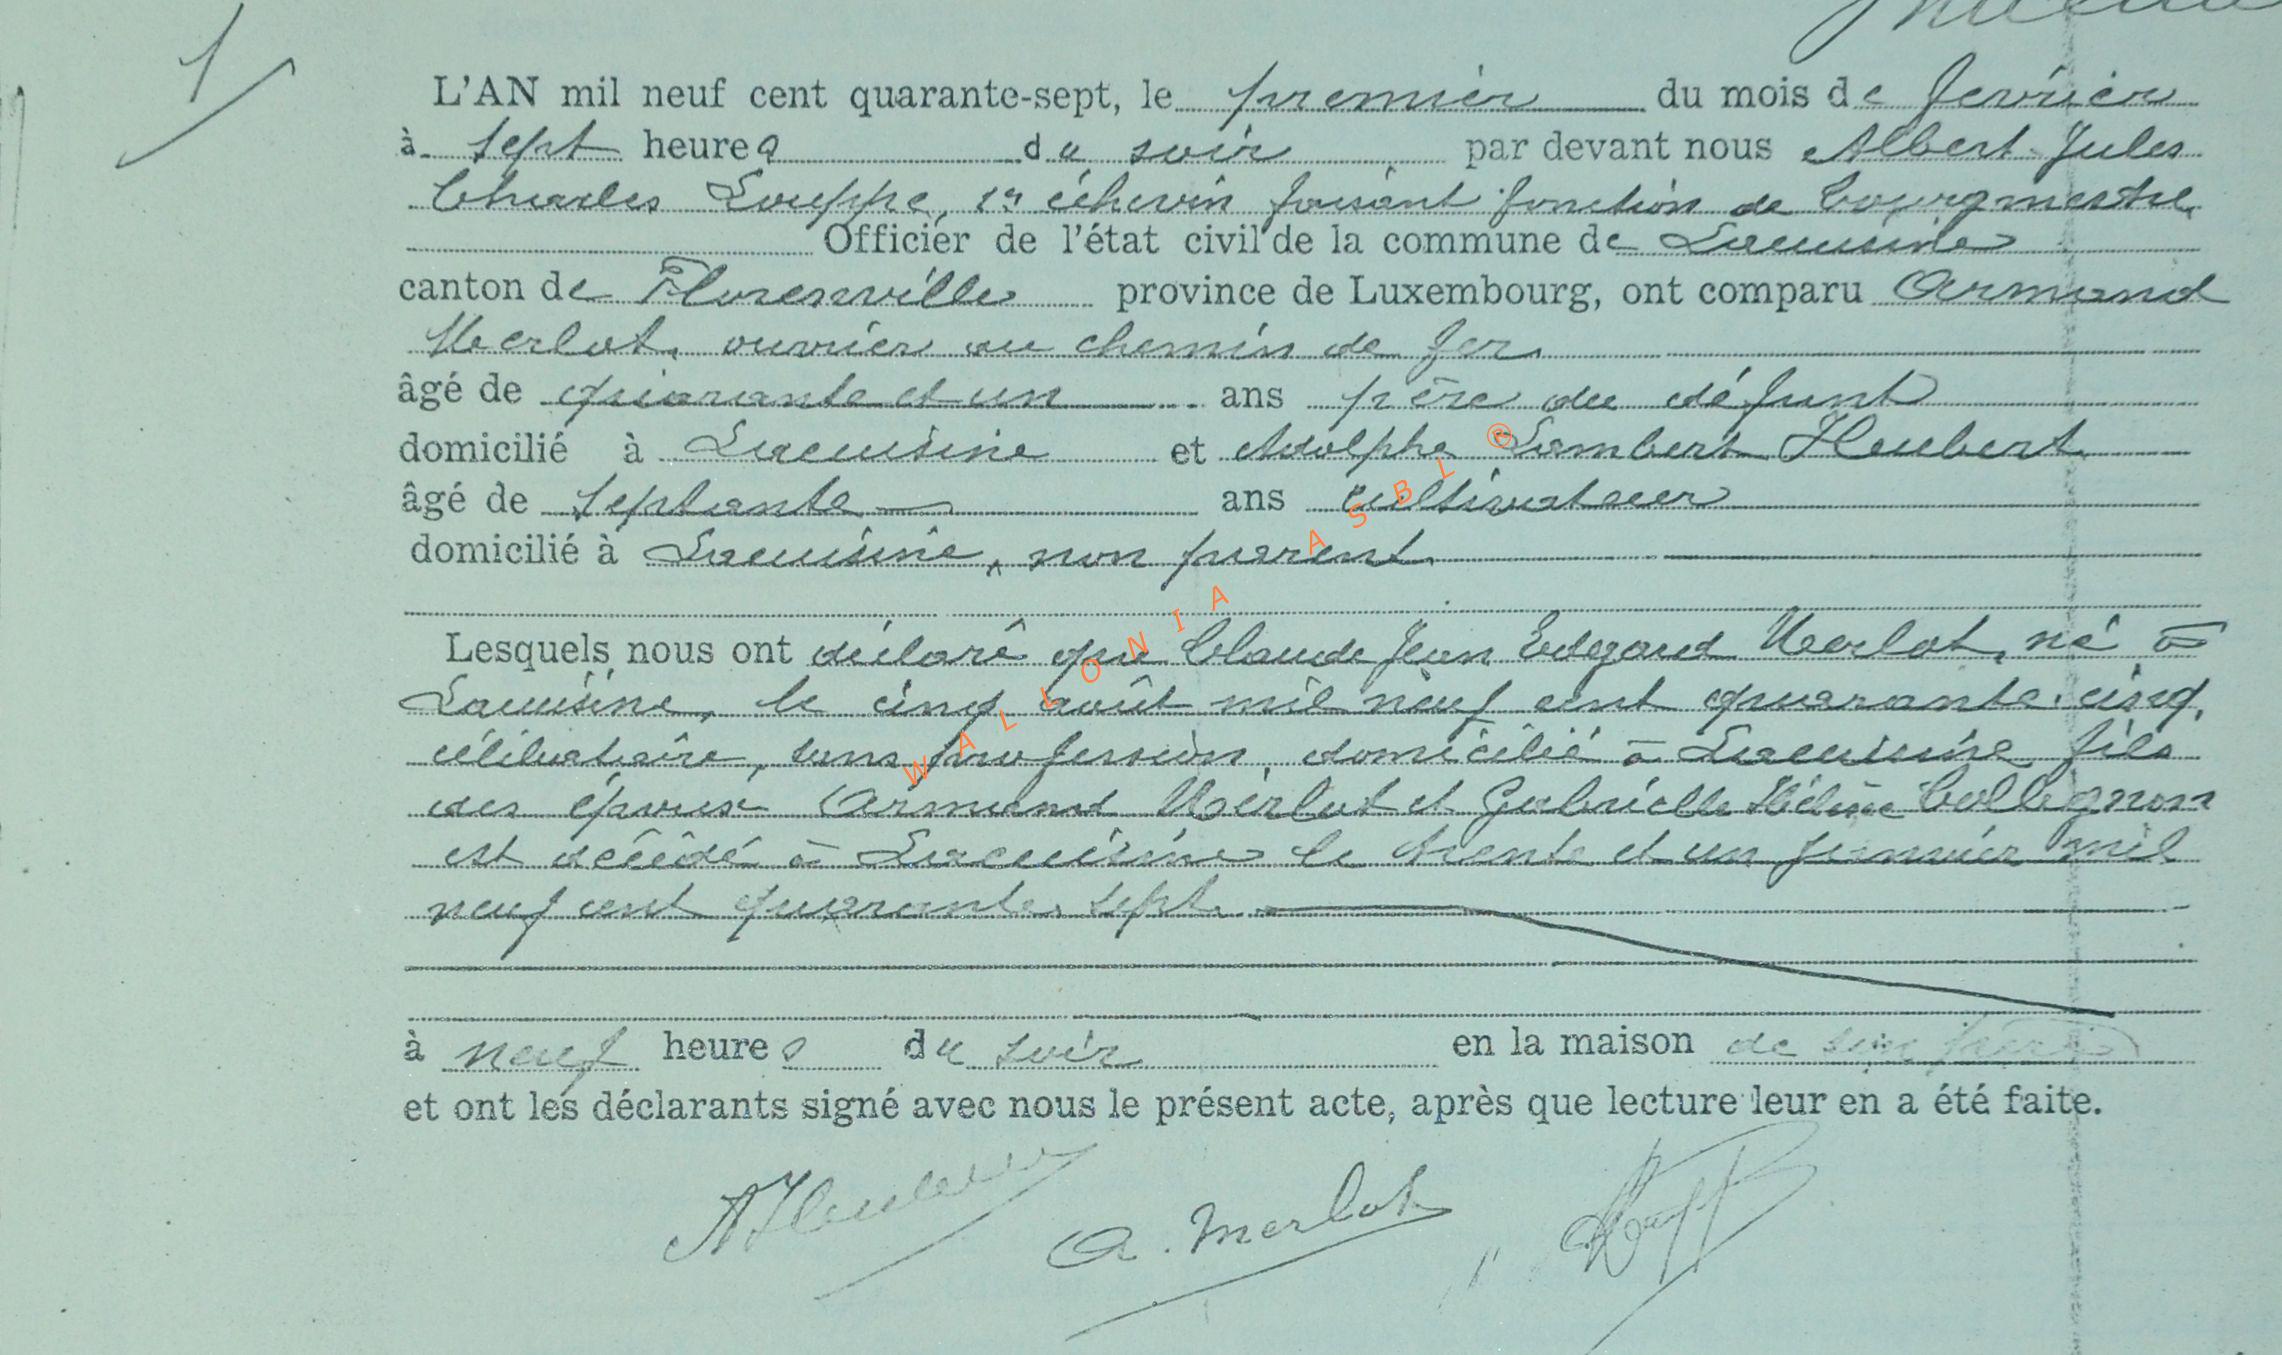 1
L'AN mil neuf cent quarante-sept, le premier du mois de février
à sept heures du soir par devant nous Albert Jules
Charles Louppe, 1er échevin faisant fonction de bourgmestre
Officier de l'état civil de la commune de Lacuisine
canton de Florenville province de Luxembourg, ont comparu Armand
Merlot, ouvrier au chemin de fer
âgé de quarante et un ans père du défunt
domicilié à Lacuisine et Adolphe Lambert Heubert
âgé de septante ans cultivateur
domicilié à Lacuisine, non parent
Lesquels nous ont déclaré que Claude Jean Edegard Merlot, né à
Lacuisine, le cinq août mil neuf cent quarante cinq,
célibataire, sans profession, domicilié à Lacuisine fils
des époux Armand Merlot et Gabrielle Hélène Collignon
est décédé à Lacuisine le trente et un janvier mil
neuf cent quarante sept
à neuf heures du soir en la maison de son
et ont les déclarants signé avec nous le présent acte, après que lecture leur en a été faite.
A. Merlot
WALLONIA ASBL ®